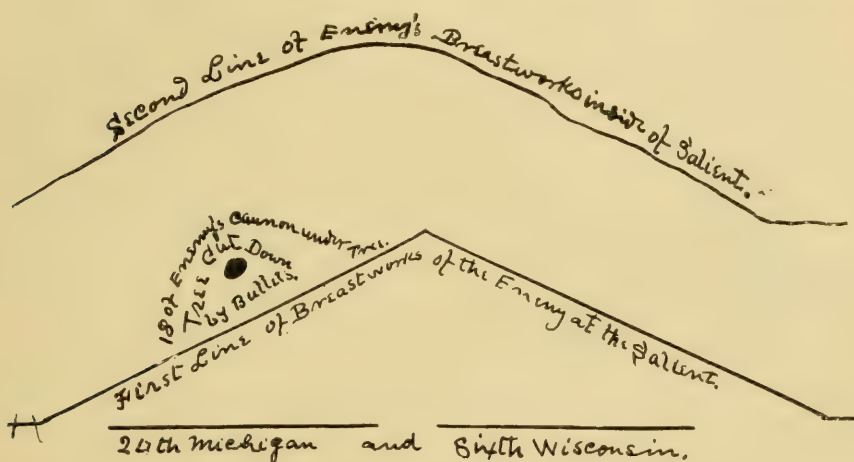 Second Line of Enemy's Breastworks inside of Salient.
18 of Enemy's Cannon under Tree.
Tree Cut Down
by Bullets.
First Line of Breastworks of the Enemy at the Salient.
24th Michigan and Sixth Wisconsin.